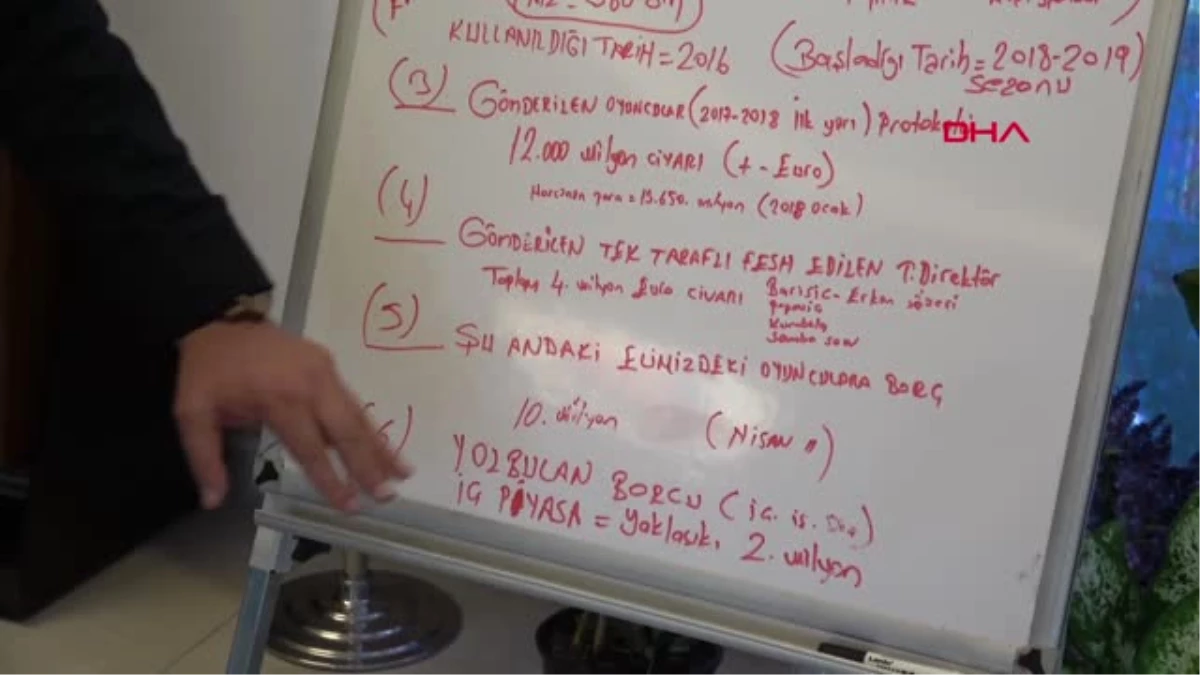 KULLANILDIĞI TARİH = 2016 (Başladığı Tarih = 2018-2019)
SEZONU
(3) GÖNDERİLEN OYUNCULAR (2017-2018 ilk yarı)
DHA
12.000 milyon CİVARI (+ - Euro)
Harcanan para = 13.650. milyon (2018 Ocak)
(4) GÖNDERİLEN TEK TARAFLI FESH EDİLEN T. Direktör
Toplam 4. milyon Euro CİVARI Barisic - Erkan sözeri
(5) ŞU ANDAKİ ELİMİZDEKİ OYUNCULARA BORÇ
10. milyon (NİSAN
YOLBULAN BORCU (
İÇ PİYASA = yaklaşık, 2. milyon